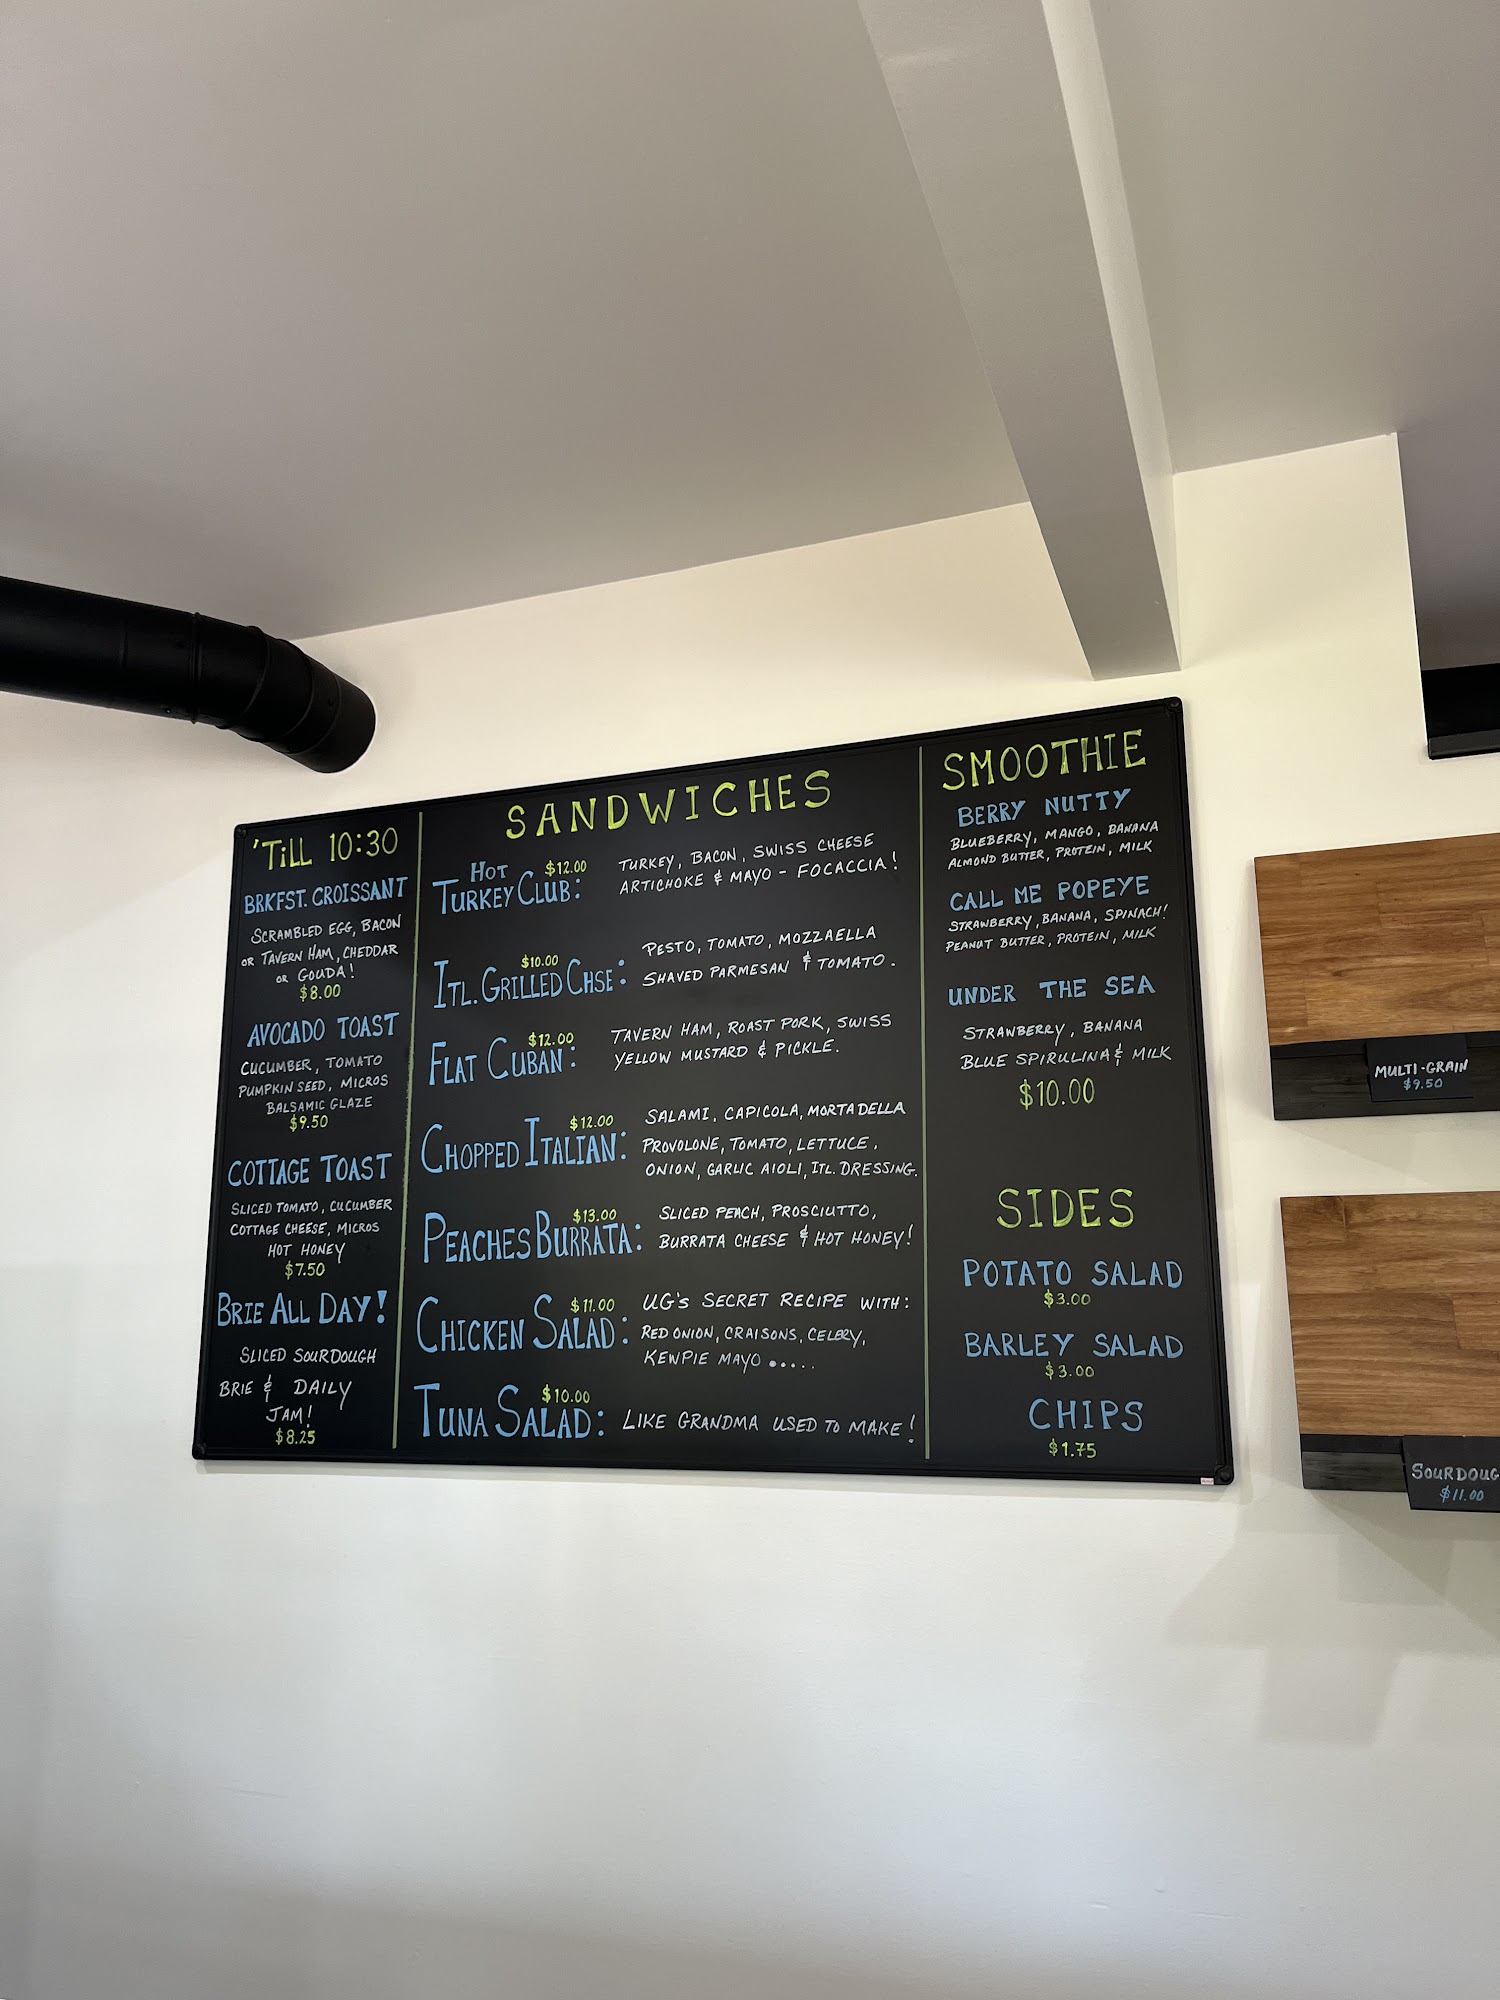 'TILL 10:30
BRKFST. CROISSANT
SCRAMBLED EGG, BACON
OR TAVERN HAM, CHEDDAR
OR GOUDA!
$8.00
AVOCADO TOAST
CUCUMBER, TOMATO
PUMPKIN SEED, MICROS
BALSAMIC GLAZE
$9.50
COTTAGE TOAST
SLICED TOMATO, CUCUMBER
COTTAGE CHEESE, MICROS
HOT HONEY
$7.50
BRIE ALL DAY!
SLICED SOURDOUGH
BRIE & DAILY
JAM!
$8.25
SANDWICHES
HOT $12.00
TURKEY CLUB:
TURKEY, BACON, SWISS CHEESE
ARTICHOKE & MAYO - FOCACCIA!
$10.00
ITL. GRILLED CHSE:
PESTO, TOMATO, MOZZAELLA
SHAVED PARMESAN & TOMATO.
$12.00
FLAT CUBAN:
TAVERN HAM, ROAST PORK, SWISS
YELLOW MUSTARD & PICKLE.
$12.00
CHOPPED ITALIAN:
SALAMI, CAPICOLA, MORTADELLA
PROVOLONE, TOMATO, LETTUCE,
ONION, GARLIC AIOLI, ITL. DRESSING.
$13.00
PEACHES BURRATA:
SLICED PEACH, PROSCIUTTO,
BURRATA CHEESE & HOT HONEY!
$11.00
CHICKEN SALAD:
UG'S SECRET RECIPE WITH:
RED ONION, CRAISONS, CELERY,
KEWPIE MAYO .....
$10.00
TUNA SALAD:
LIKE GRANDMA USED TO MAKE!
SMOOTHIE
BERRY NUTTY
BLUEBERRY, MANGO, BANANA
ALMOND BUTTER, PROTEIN, MILK
CALL ME POPEYE
STRAWBERRY, BANANA, SPINACH!
PEANUT BUTTER, PROTEIN, MILK
UNDER THE SEA
STRAWBERRY, BANANA
BLUE SPIRULINA & MILK
$10.00
SIDES
POTATO SALAD
$3.00
BARLEY SALAD
$3.00
CHIPS
$1.75
MULTI-GRAIN
$9.50
SOURDOUG
$11.00